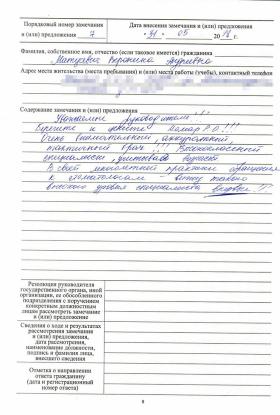 Порядковый номер замечания
и (или) предложения 7
Дата внесения замечания и (или) предложения
« 31 » 05 2018 г.
Фамилия, собственное имя, отчество (если таковое имеется) гражданина
Вероника
Адрес места жительства (места пребывания) и (или) места работы (учебы), контактный телефон
Содержание замечания и (или) предложения
Уважаемые руководители!!!
Берегите и цените !!!
Очень внимательный, аккуратный,
тактичный врач!!! Высококлассный
специалист,
В своей многолетней практике обращения
к стоматологам - такого
высокого уровня специалиста !!!
Резолюция руководителя
государственного органа, иной
организации, ее обособленного
подразделения с поручением
конкретным должностным
лицам рассмотреть замечание
и (или) предложение
Сведения о ходе и результатах
рассмотрения замечания
и (или) предложения,
дата рассмотрения,
наименование должности,
подпись и фамилия лица,
внесшего сведения
Отметка о направлении
ответа гражданину
(дата и регистрационный
номер ответа)
8